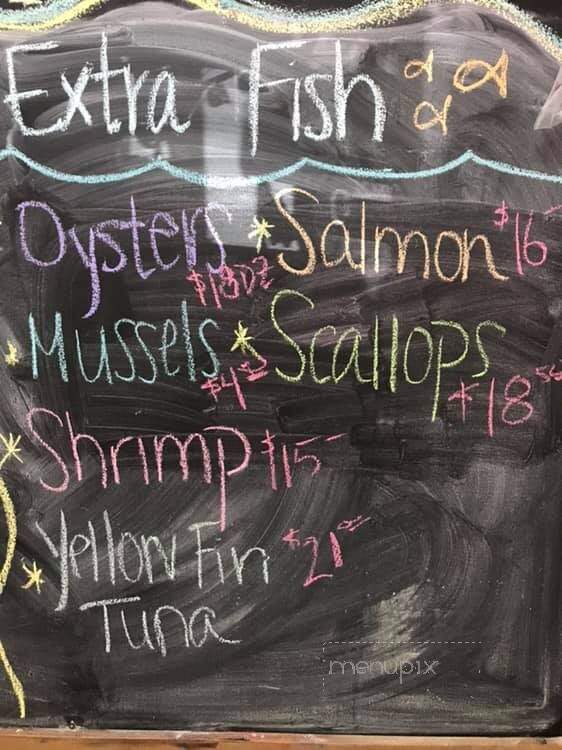 Extra Fish
Oysters * Salmon $16-
$18DZ
Mussels * Scallops
$4 $18
Shrimp $15-
* Yellow Fin $21
Tuna
menupix